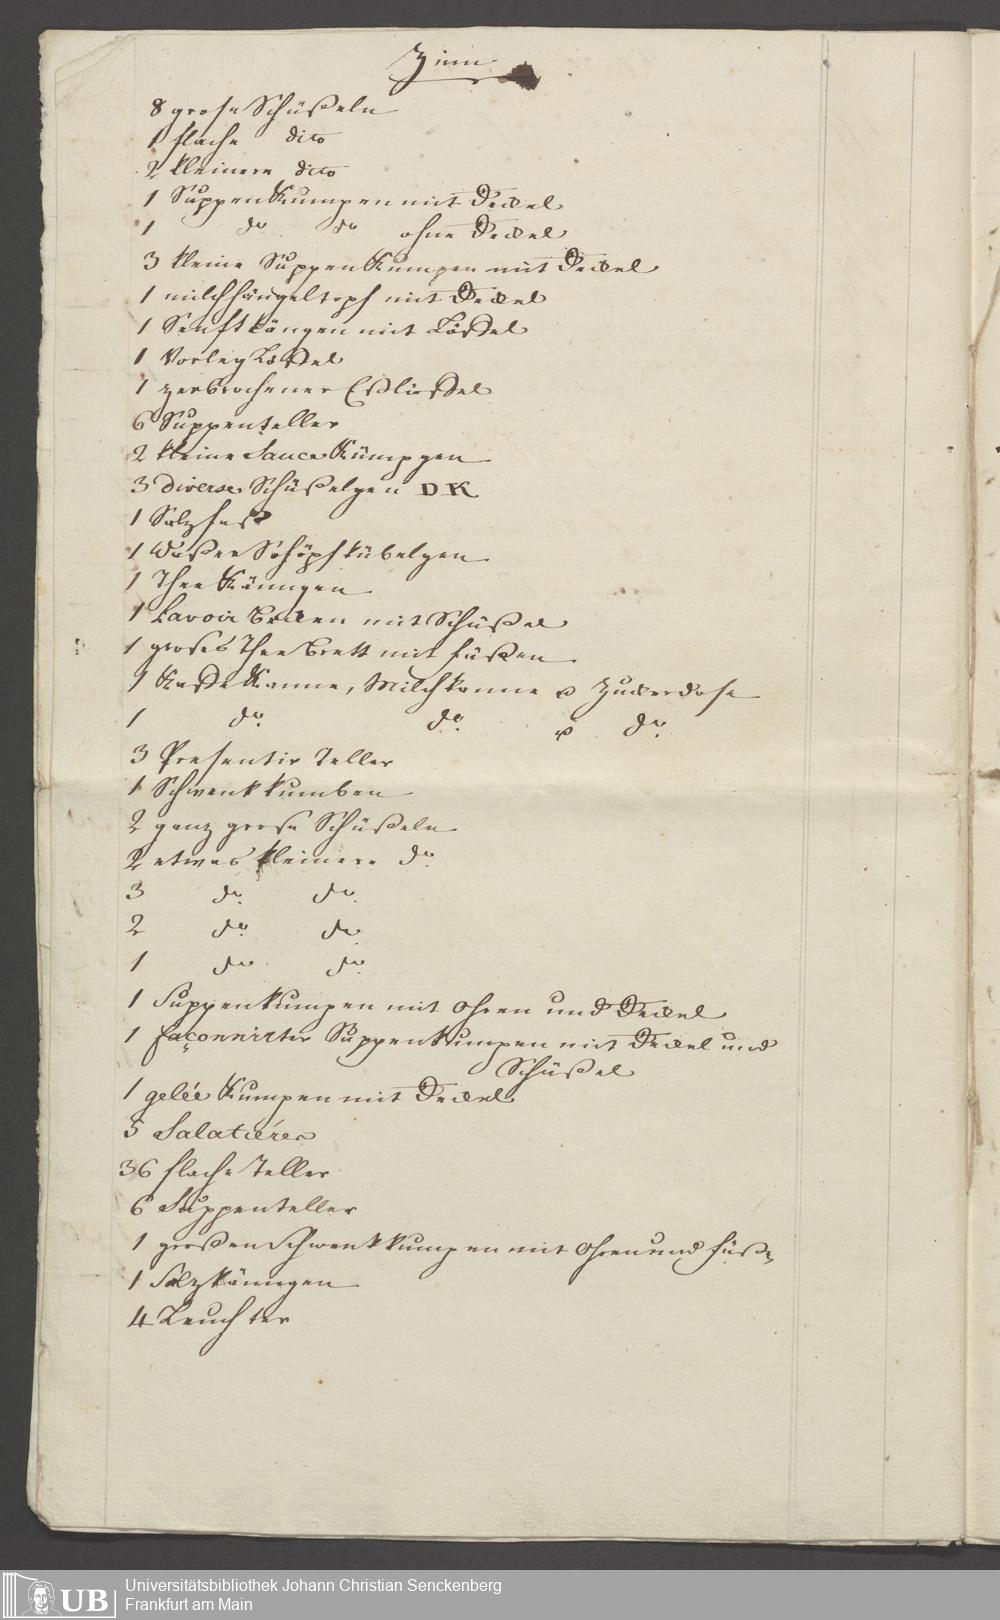 Zinn
8 grose Schüßeln
1 flache dito
2 kleinere dito
1 Suppen Kumpen mit Deckel
1 do do ohne Deckel
3 kleine Suppen Kumpen mit Deckel
1 milchhängeltopf mit Deckel
1 Senftkängen mit Löffel
1 Vorleg Löffel
1 zerbrochener Eßlöffel
6 Suppenteller
2 kleine Sauce Kümpgen
3 diverse Schüßelgen DK
1 Salzfaß
1 Waßer Schöpfkübelgen
1 Thee Känngen
1 Lavoir Becken mit Schüßel
1 groses Thee Brett mit füßen
1 Kaffe Kanne, Milchkanne u Zuckerdose
1 do. do. u do.
3 Presentir Teller
1 Schwenkkumben
2 ganz grose Schüßeln
2 etwas kleinere do.
3 do. do.
2 do. do.
1 do. do.
1 Suppenkumpen mit Ohren und Deckel
1 façonnirter Suppenkumpen mit Deckel und
Schüßel
1 gelée Kumpen mit Deckel
5 Salatiéren
36 flache Teller
6 Suppenteller
1 großen Schwenkkumpen mit Ohren und füße
1 Salzkänngen
4 Leuchter
UB
Universitätsbibliothek Johann Christian Senckenberg
Frankfurt am Main